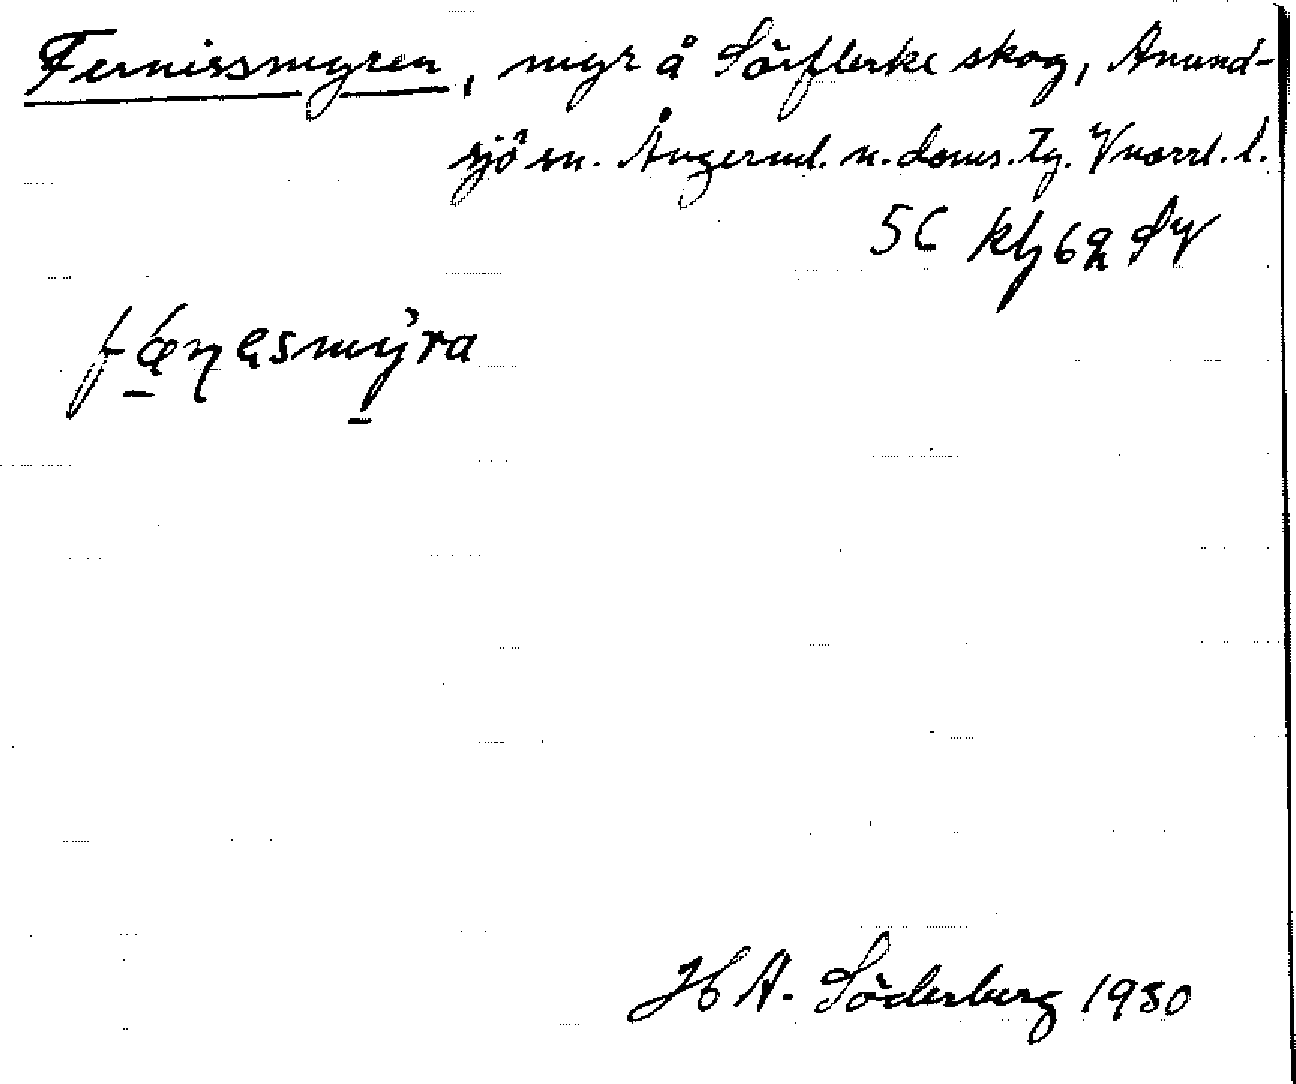 Fernissmyren, myr å Sörflerke skog, Anund-
sjö sn. Ångerml. n. doms. tg. Vnorrl. l.
5C klj 6g SV
fæṇesmy̌ra
H A. Söderberg 1930